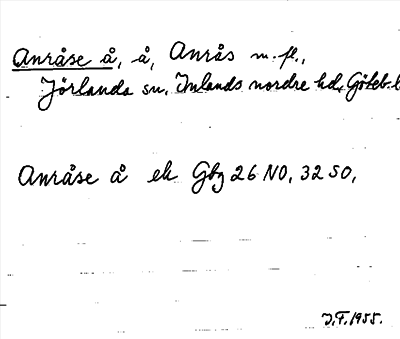 Anråse å, å, Anrås m. fl.,
Jörlanda sn, Inlands nordre hd, Göteb. l
Anråse å ek Gbg 26 NO, 32 SO,
J.F. 1955.